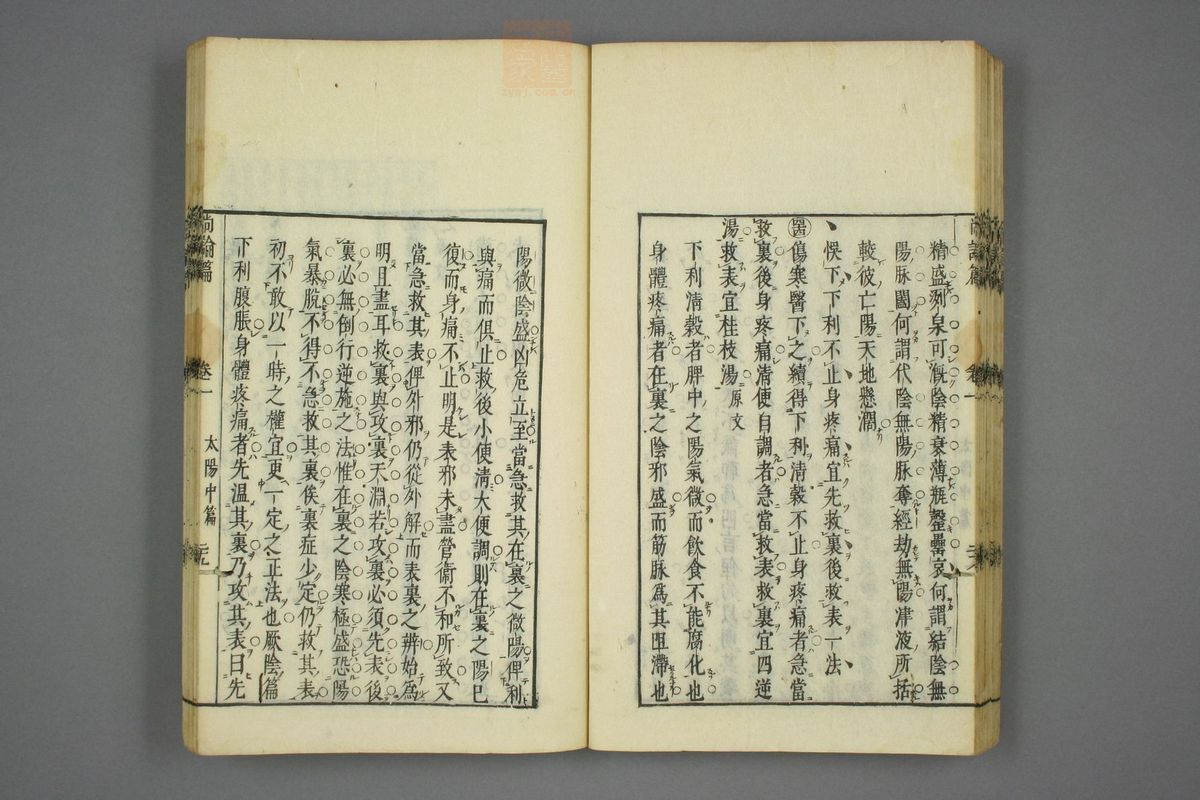 精盛冽泉可漑陰精衰薄瓶罄罍哀何謂結陰無
陽脉闔何謂代陰無陽脉奪經劫無陽津液所括
較彼亡陽天地懸濶
悞下下利不止身疼痛宜先救裏後救表一法
醫傷寒醫下之續得下利清穀不止身疼痛者急當
救裏後身疼痛清便自調者急當救表救裏宜四逆
湯救表宜桂枝湯原文
下利清穀者脾中之陽氣微而飲食不能腐化也
身體疼痛者在裏之陰邪盛而筋脉爲其阻滯也
陽微陰盛凶危立至當急救其在裏之微陽俾利
與痛而俱止救後小便清大便調則在裏之陽已
復而身痛不止明是表邪未盡營衞不和所致又
當急救其表俾外邪仍從外解而表裏之辨始爲
明且盡耳救裏與攻裏天淵若攻裏必須先表後
裏必無倒行逆施之法惟在裏之陰寒極盛恐陽
氣暴脫不得不急救其裏俟裏症少定仍救其表
初不敢以一時之權宜更一定之正法也厥陰篇
下利腹脹身體疼痛者先温其裏乃攻其表曰先
尚論篇
卷一
太陽中篇